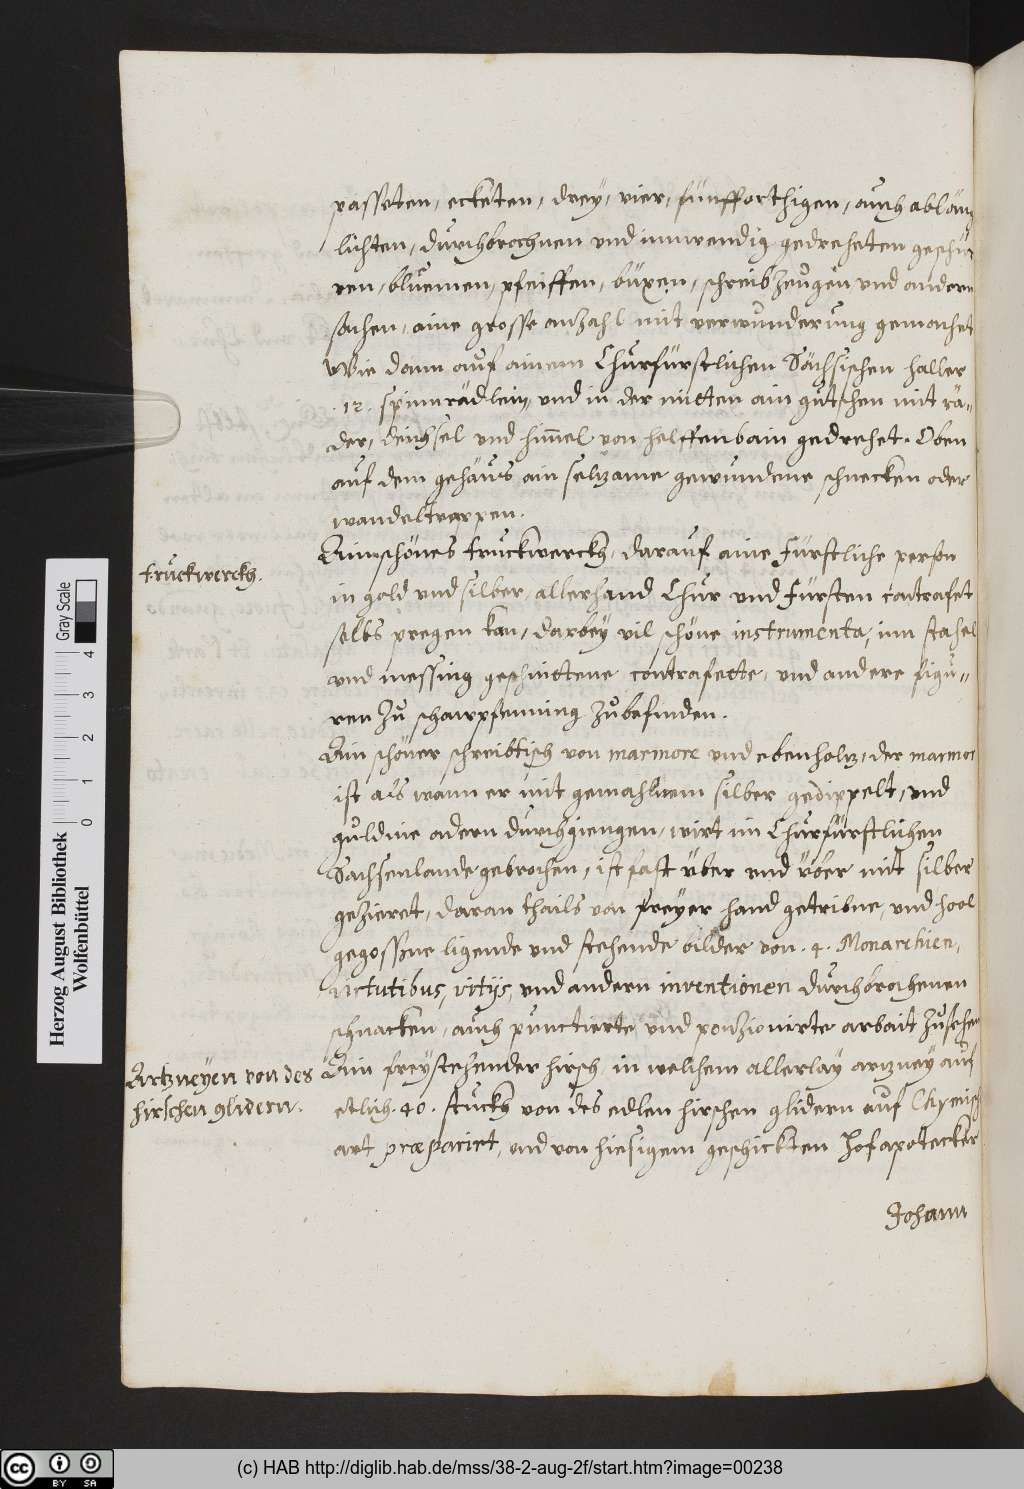 passeten, ecketen, drey, vier, fünfforthigen, auch abläng
lichten, durchbrochnen und innwendig gedreheten geschür
ren, bluemen, pfeiffen, büxen, schreibzeugen und andern
sachen, aine grosse anzahl mit verwunderung gemachet
Wie dann auf ainem Churfürstlichen Sächsischen haller
.12. spinnrädlein, und in der mitten ain gutschen mit rä„
der, deichsel und him̄el von helffenbain gedrehet. Oben
auf dem gehäus ain selzame gewundene schnecken oder
wandeltreppen.
truckwerckh.
Ain schönes truckwerckh, darauf aine Fürstliche person
in gold und silber, allerhand Chur und Fürsten contrafet
selbs pregen kan, darbey vil schöne instrumenta, inn stahel
und messing geschnittene contrafette, und andere figu„
ren zu schawpfenning zubefinden.
Ain schöner schreibtisch von marmore und ebenholtz, der marmor
ist als wann er mit gemahlnem silber gedippelt, und
guldine adern durchgiengen, wirt im Churfürstlichen
Sachsenlande gebrochen, ist fast über und über mit silber
gezieret, daran thails von freyer hand getribne, und hool
gegossne ligende und stehende bilder von .4. Monarchien,
virtutibus, vitijs, und andern inventionen durchbrochenen
schnacken, auch punctierte und ponzionirte arbait zusehen
Artzneyen von des
hirschen glidern.
Ain freystehender hirsch, in welchem allerlay artzney auf
etlich .40. stuckh von des edlen hirschen glidern auf Chymisch
art præparirt, und von hiesigem geschickten Hofapotecker
Johann
Herzog August Bibliothek
Wolfenbüttel
Gray Scale
0 1 2 3 4
(c) HAB http://diglib.hab.de/mss/38-2-aug-2f/start.htm?image=00238
cc BY SA